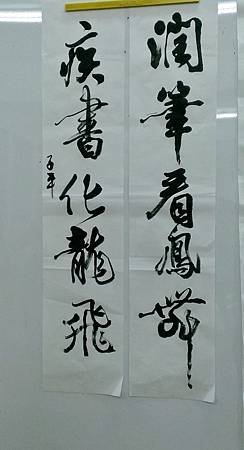 潤筆看鳳舞
疾書化龍飛
子平